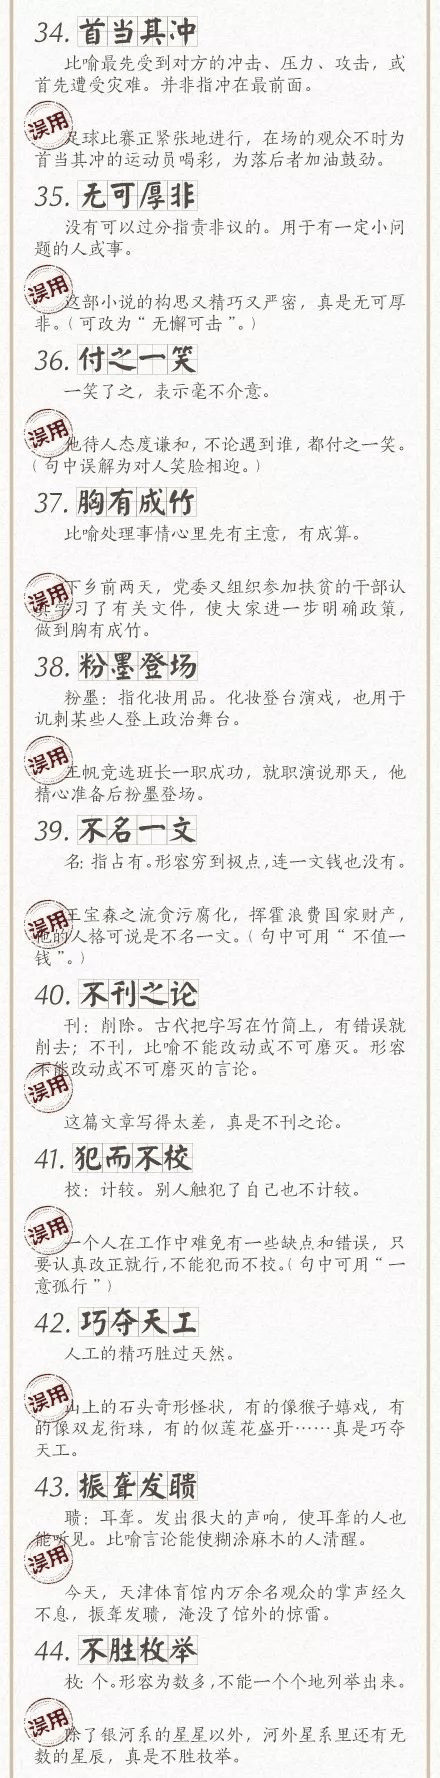 34. 首当其冲
比喻最先受到对方的冲击、压力、攻击，或
首先遭受灾难。并非指冲在最前面。
误用
足球比赛正紧张地进行，在场的观众不时为
首当其冲的运动员喝彩，为落后者加油鼓劲。
35. 无可厚非
没有可以过分指责非议的。用于有一定小问
题的人或事。
误用
这部小说的构思又精巧又严密，真是无可厚
非。（可改为“无懈可击”。）
36. 付之一笑
一笑了之，表示毫不介意。
误用
他待人态度谦和，不论遇到谁，都付之一笑。
（句中误解为对人笑脸相迎。）
37. 胸有成竹
比喻处理事情心里先有主意，有成算。
误用
下乡前两天，党委又组织参加扶贫的干部认
真学习了有关文件，使大家进一步明确政策，
做到胸有成竹。
38. 粉墨登场
粉墨：指化妆用品。化妆登台演戏，也用于
讥刺某些人登上政治舞台。
误用
王帆竞选班长一职成功，就职演说那天，他
精心准备后粉墨登场。
39. 不名一文
名：指占有。形容穷到极点，连一文钱也没有。
误用
王宝森之流贪污腐化，挥霍浪费国家财产，
他的人格可说是不名一文。（句中可用“不值一
钱”。）
40. 不刊之论
刊：削除。古代把字写在竹简上，有错误就
削去；不刊，比喻不能改动或不可磨灭。形容
不能改动或不可磨灭的言论。
误用
这篇文章写得太差，真是不刊之论。
41. 犯而不校
校：计较。别人触犯了自己也不计较。
误用
一个人在工作中难免有一些缺点和错误，只
要认真改正就行，不能犯而不校。（句中可用“一
意孤行”）
42. 巧夺天工
人工的精巧胜过天然。
误用
山上的石头奇形怪状，有的像猴子嬉戏，有
的像双龙衔珠，有的似莲花盛开……真是巧夺
天工。
43. 振聋发聩
聩：耳聋。发出很大的声响，使耳聋的人也
能听见。比喻言论能使糊涂麻木的人清醒。
误用
今天，天津体育馆内万余名观众的掌声经久
不息，振聋发聩，淹没了馆外的惊雷。
44. 不胜枚举
枚：个。形容为数多，不能一个个地列举出来。
误用
除了银河系的星星以外，河外星系里还有无
数的星辰，真是不胜枚举。